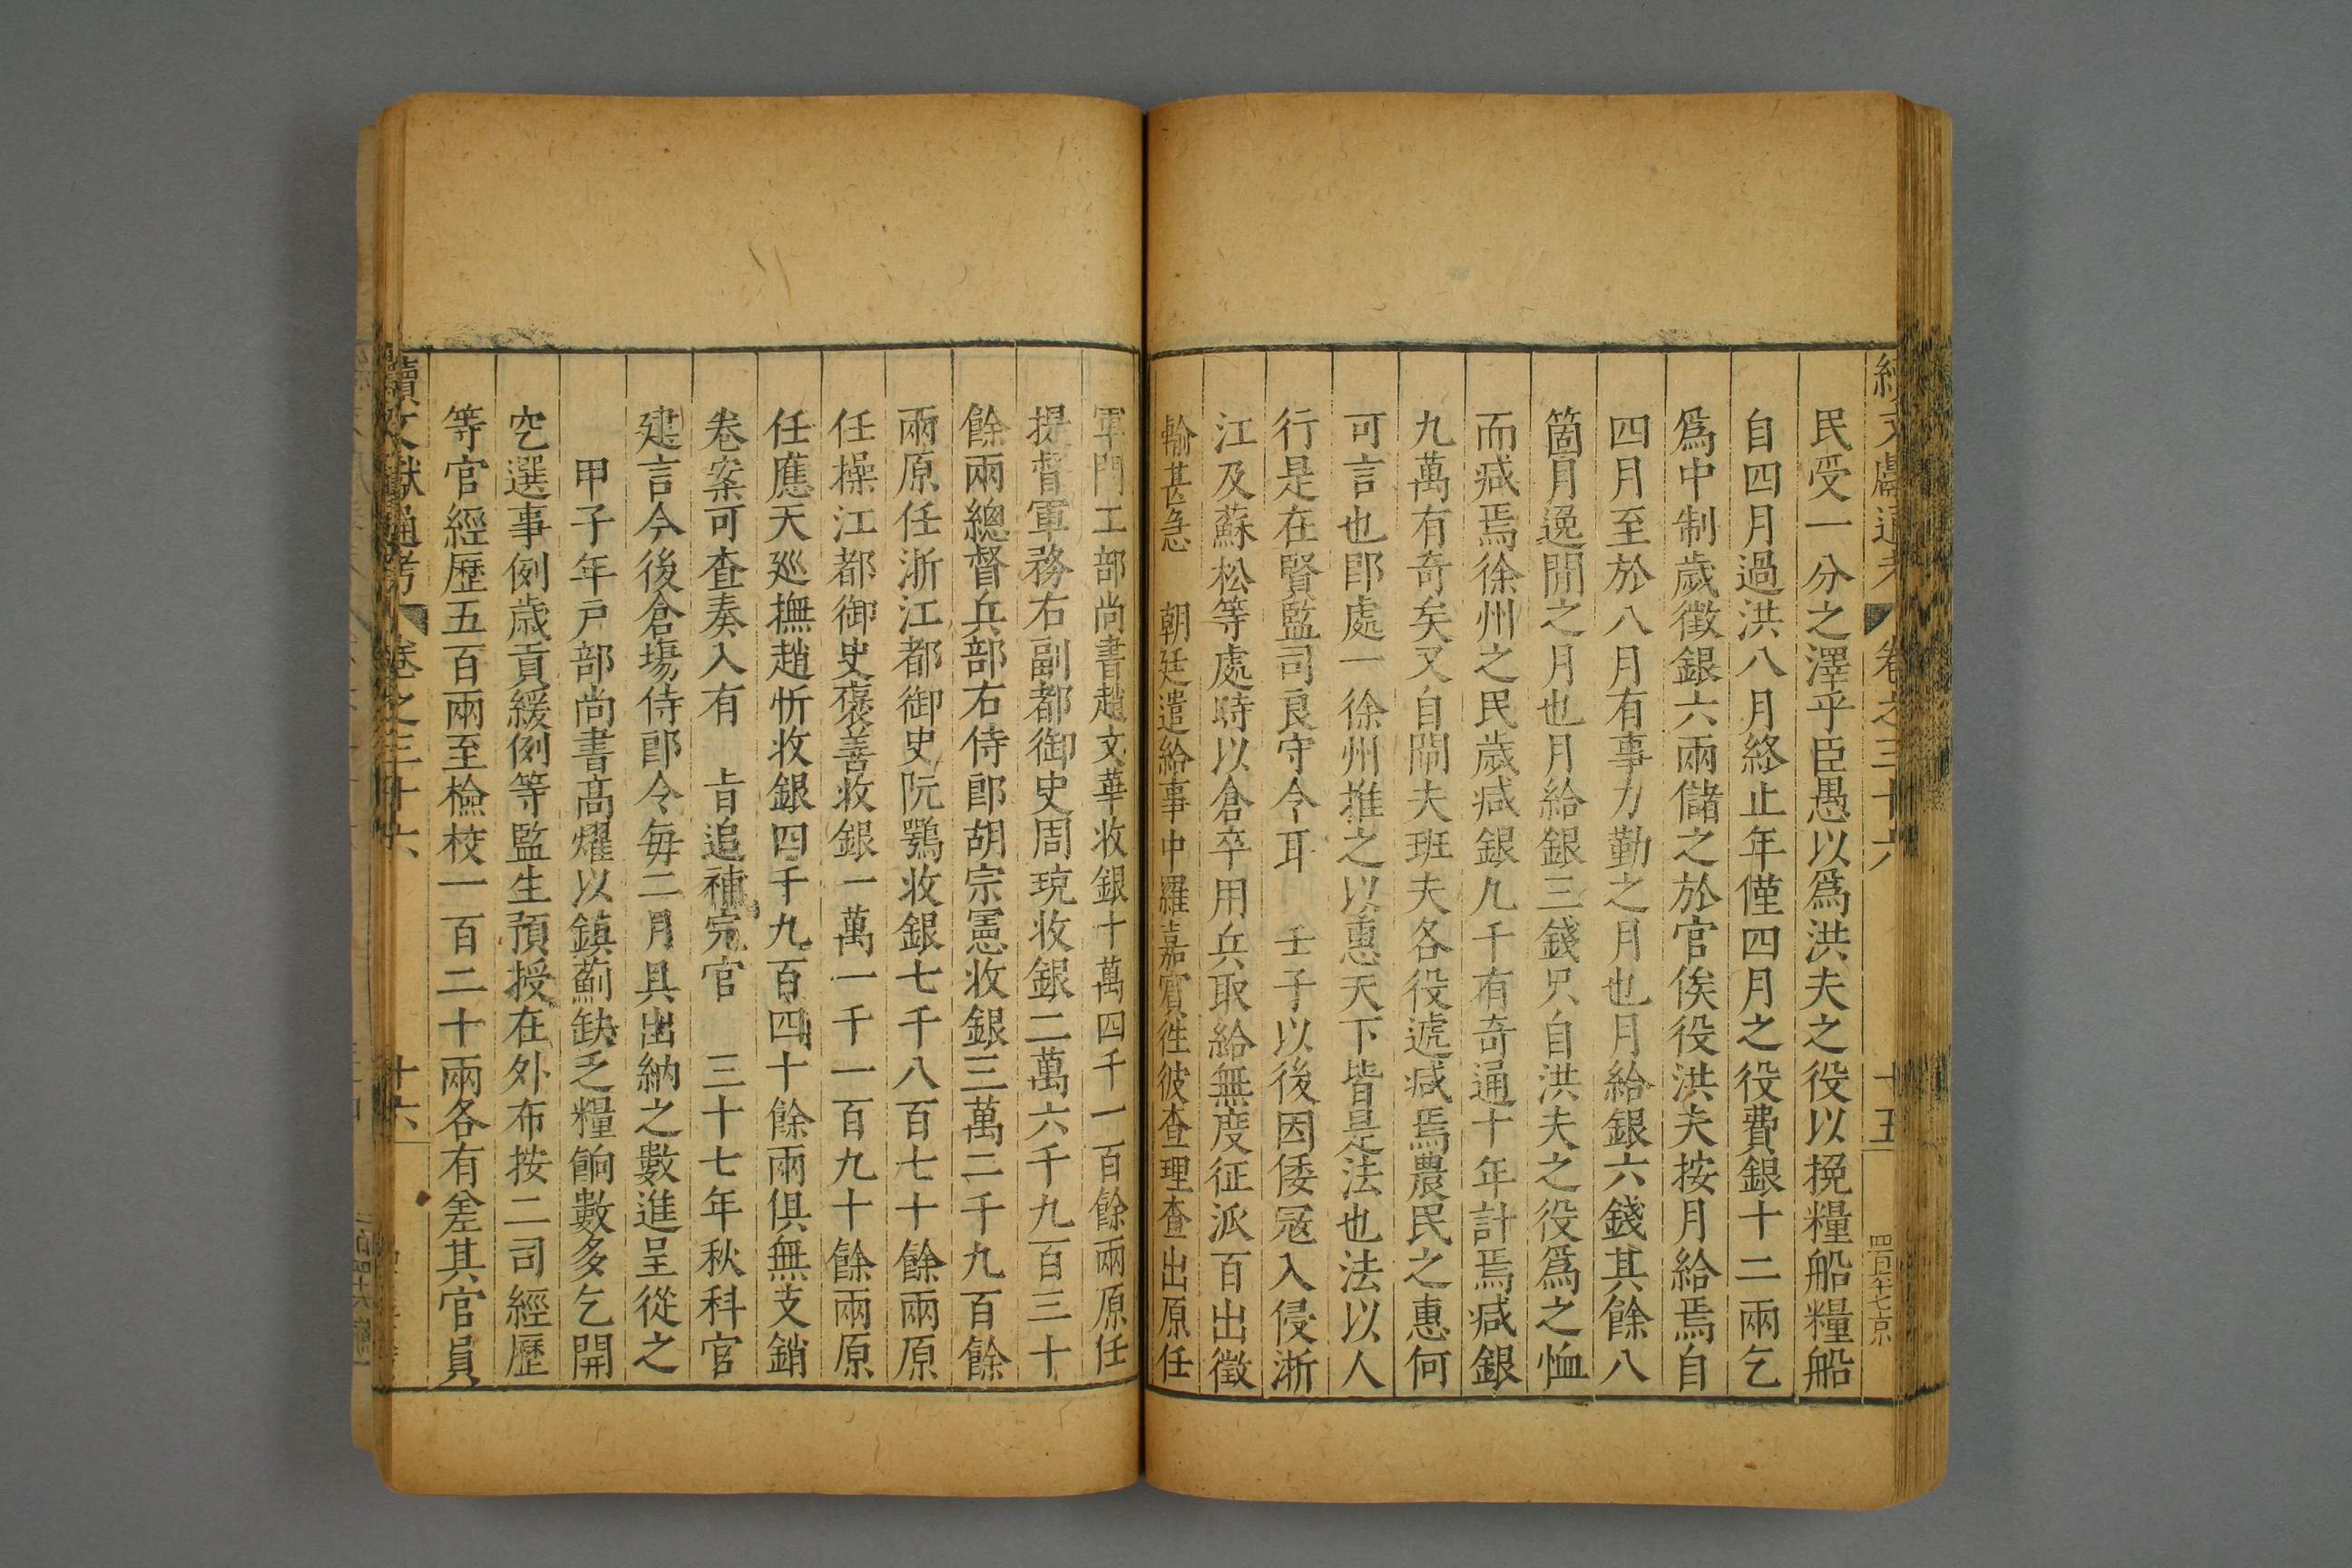 續文獻通考 卷之三十六 十五
民受一分之澤乎臣愚以爲洪夫之役以挽糧船糧船
自四月過洪八月終止年僅四月之役費銀十二兩乞
爲中制歲徵銀六兩儲之於官俟役洪夫按月給焉自
四月至於八月有事力勤之月也月給銀六錢其餘八
箇月逸閒之月也月給銀三錢只自洪夫之役爲之恤
而減焉徐州之民歲減銀九千有奇通十年計焉減銀
九萬有奇矣又自閘夫班夫各役遞減焉農民之惠何
可言也卽處一徐州推之以惠天下皆是法也法以人
行是在賢監司良守令耳 壬子以後因倭寇入侵浙
江及蘇松等處時以倉卒用兵取給無度征派百出徵
輸甚急 朝廷遣給事中羅嘉賓徃彼查理查出原任
軍門工部尚書趙文華收銀十萬四千一百餘兩原任
提督軍務右副都御史周珫收銀二萬六千九百三十
餘兩總督兵部右侍郎胡宗憲收銀三萬二千九百餘
兩原任浙江都御史阮鶚收銀七千八百七十餘兩原
任操江都御史褒善收銀一萬一千一百九十餘兩原
任應天廵撫趙忻收銀四千九百四十餘兩俱無支銷
卷案可查奏入有 旨追補完官 三十七年秋科官
建言今後倉塲侍郎令每二月具出納之數進呈從之
甲子年戸部尚書高燿以鎮薊缺乏糧餉數多乞開
空選事例歲貢緩例等監生預授在外布按二司經歷
等官經歷五百兩至檢校一百二十兩各有差其官員
續文獻通考 卷之三十六 十六